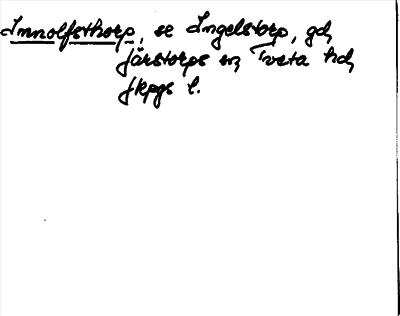 Innolfsthorp, se Ingelstorp, gd,
Järstorps sn, Tveta hd,
Jkpgs l.